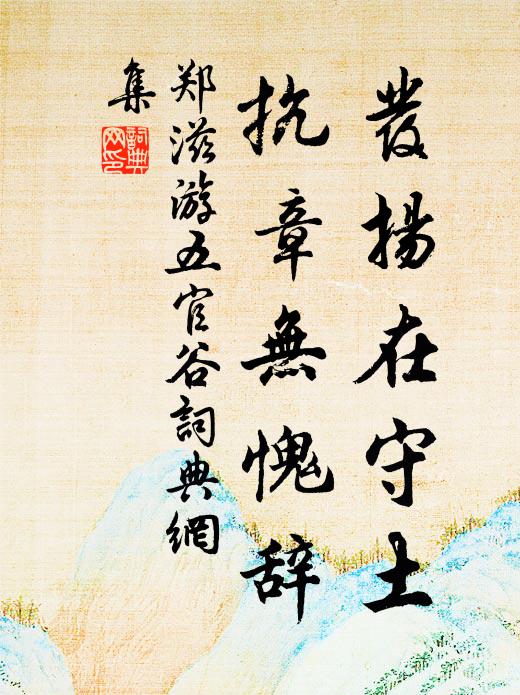 發揚在守土
抗章無愧辞
郑滋游五官谷詞典網
集
詞典
网印